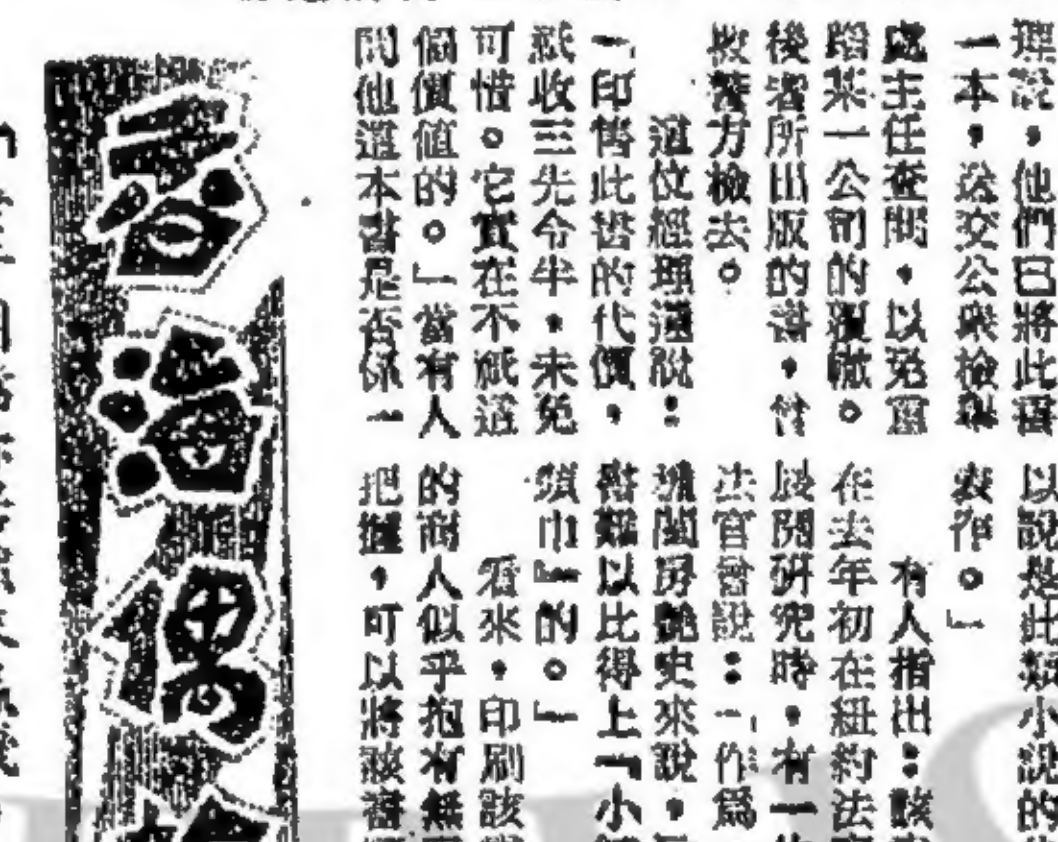 理說，他們已將此書
一本，送交公眾檢舉
處主任查閱，以免重
蹈某一公司的覆轍。
後者所出版的書，曾
被警方檢去。
這位經理還說：
「印售此書的代價，
祇收三先令半，未免
可惜。它實在不祇這
個價值的。」當有人
問他這本書是否係一
以說是此類小說的
表作。」
有人指出：該
在去年初在紐約法
段閱研究時，有一
法官曾說：「作爲
閨房艷史來說，
書難以比得上『小
頭巾』的。」
看來，印刷該
的商人似乎抱有無
把握，可以將該書
雲海偶